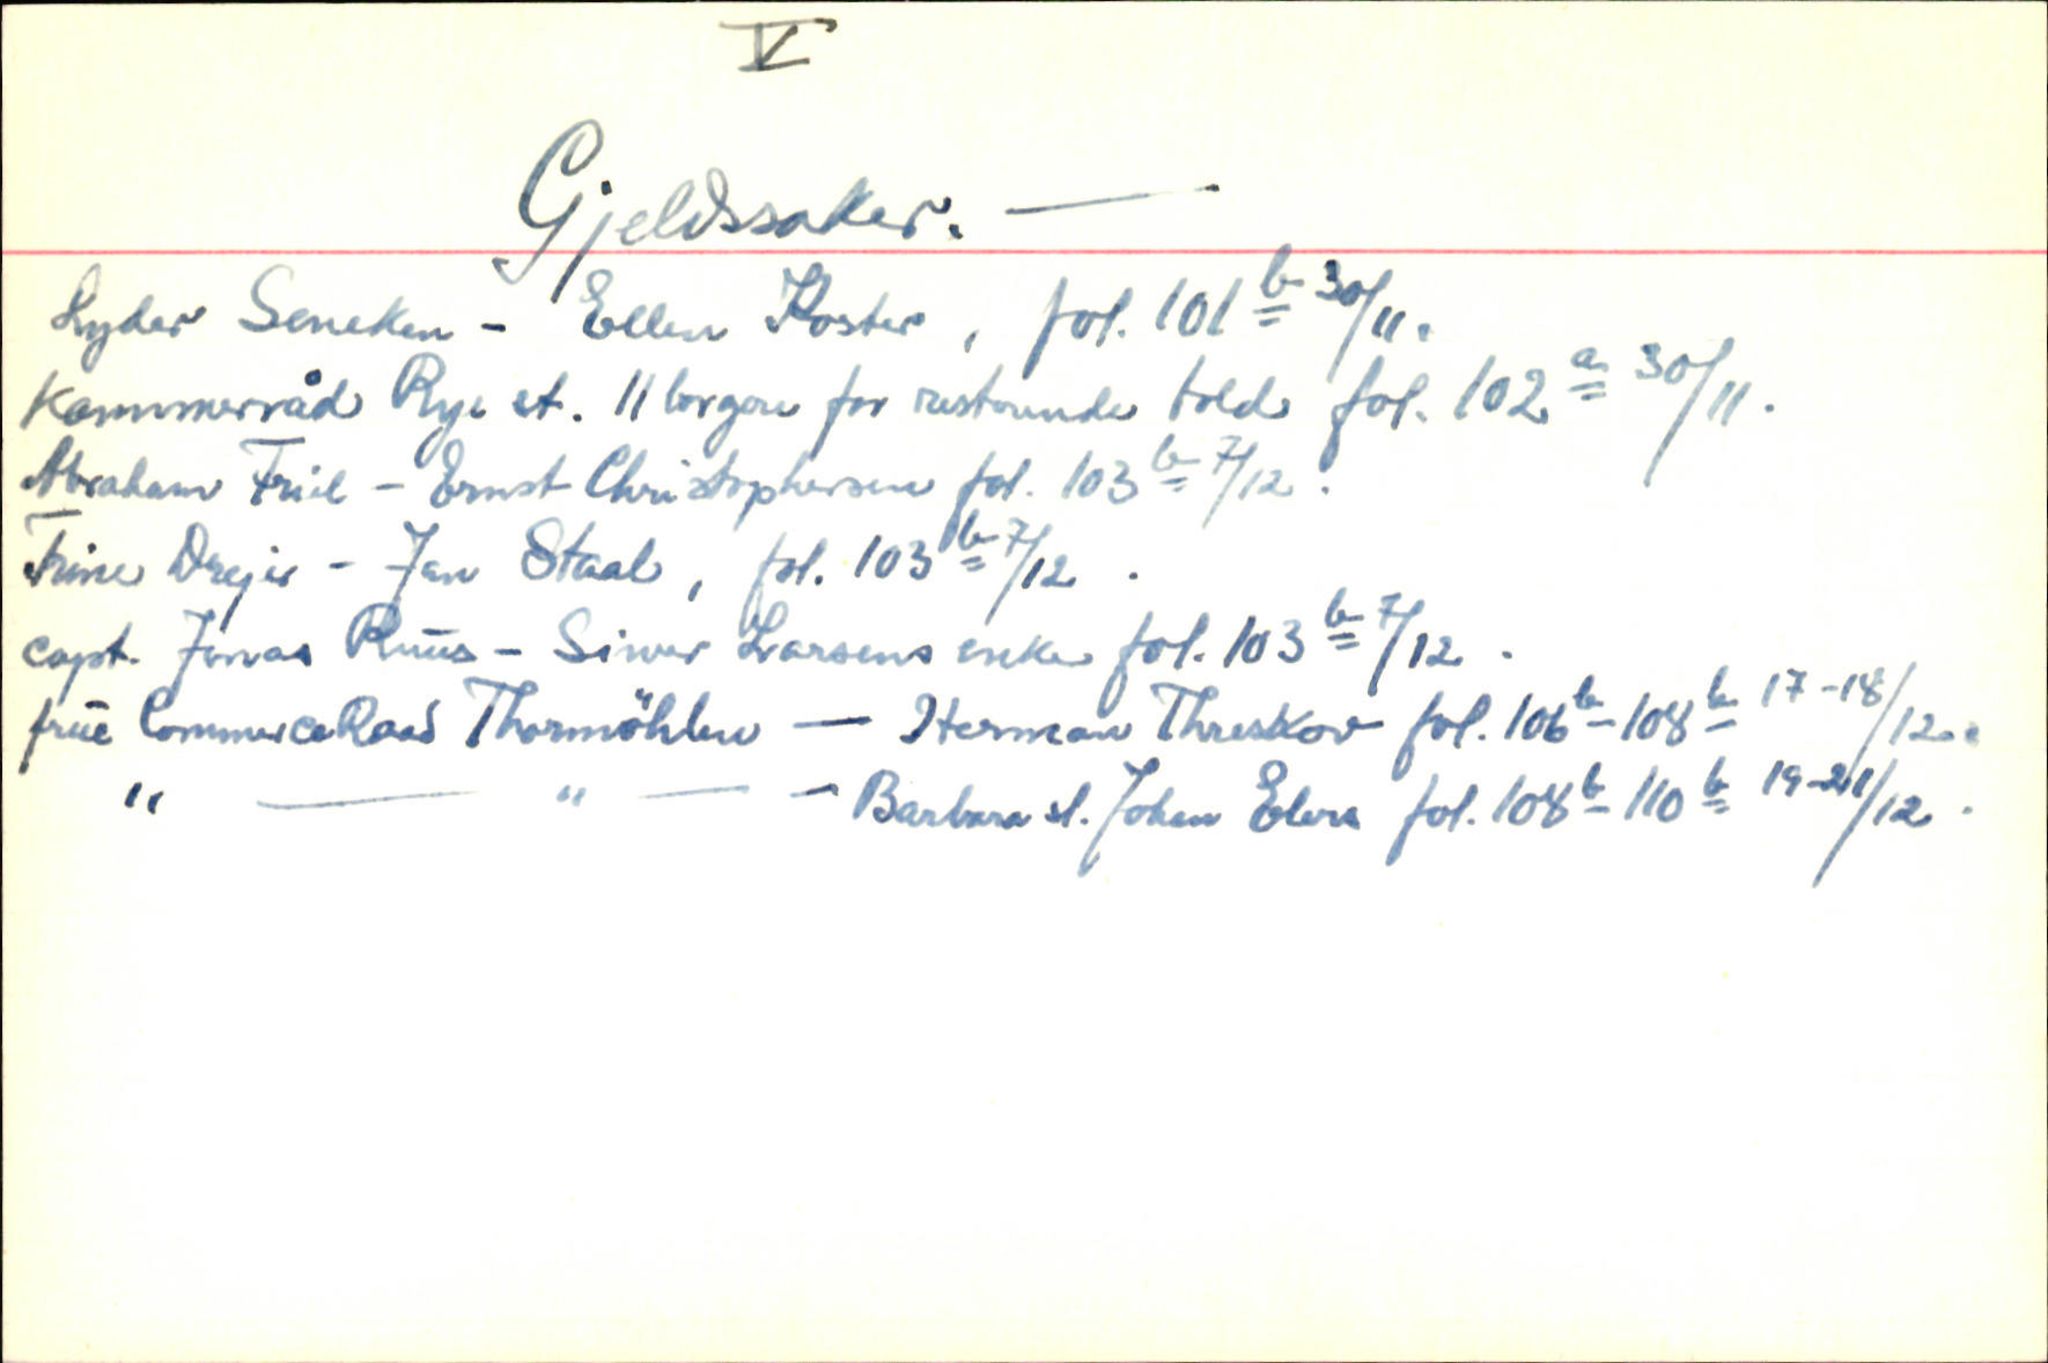 V
Gjeldssaker. —
Lyder Seneken - Ellen Koster, fol. 101 b 30/11.
Kammerråd Rye ct. 11 borgere for resterende told fol. 102 a 30/11.
Abraham Friil - Ernst Christophersen fol. 103 b 7/12.
Trine Drejer - Jan Staal, fol. 103 b 7/12.
capt. Jonas Ruus - Siver Larsens enke fol. 103 b 7/12.
frue CommerceRaad Thormöhlen — Herman Threskov fol. 106 b - 108 b 17-18/12.
" — " — - Barbara sl. Johan Elers fol. 108 b - 110 b 19-21/12.